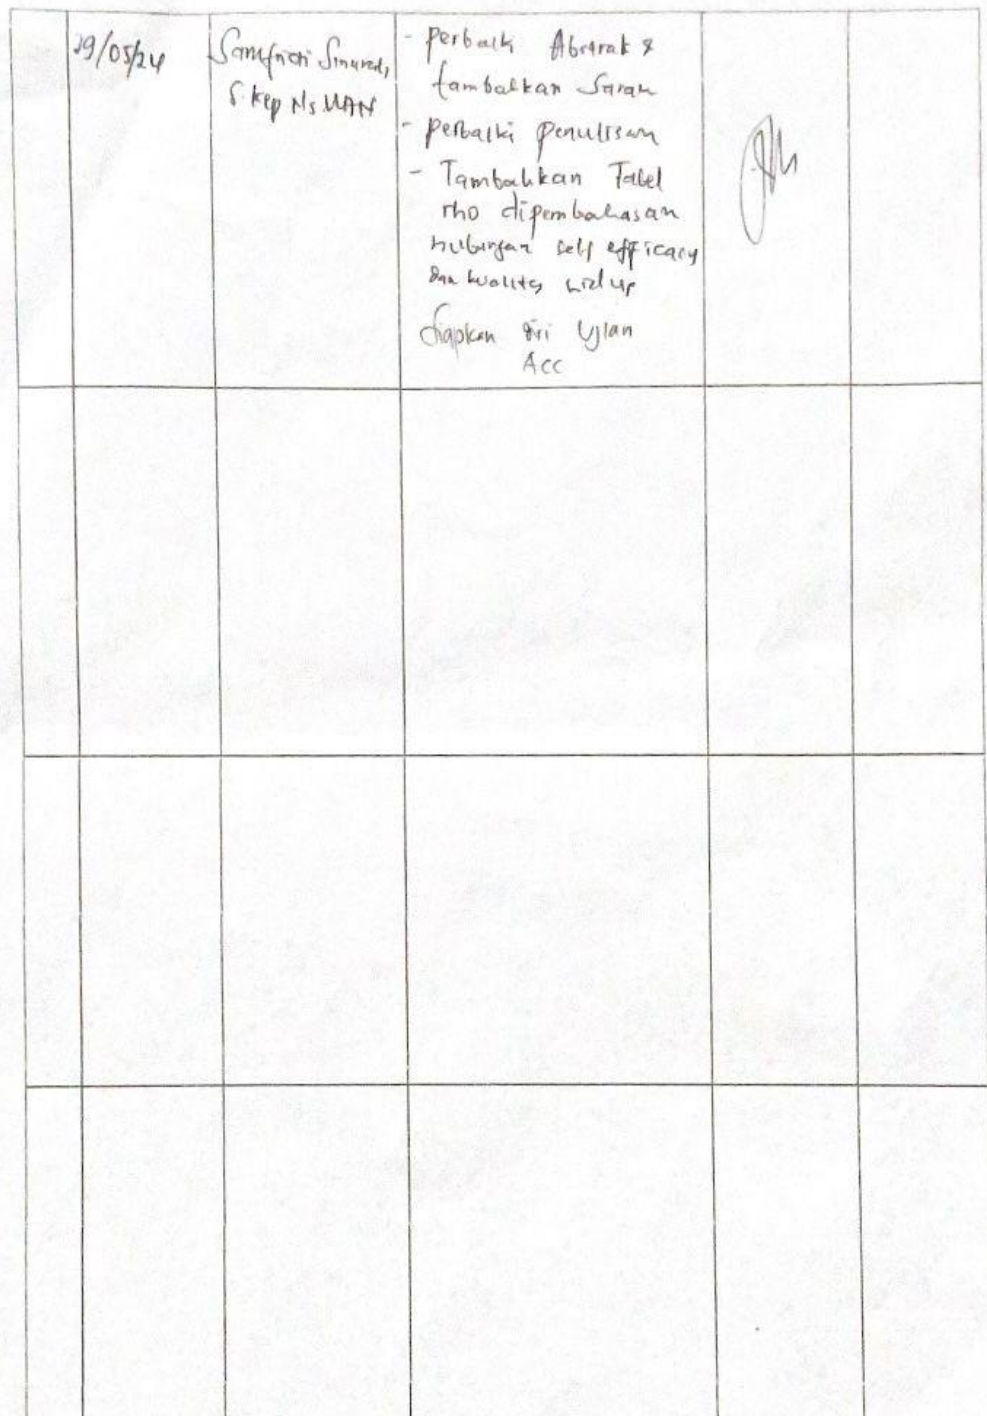 29/05/24
Samfriati Sinurat,
S.Kep Ns MAN
- perbaiki Abstrak &
tambahkan Saran
- perbaiki penulisan
- Tambahkan Tabel
rho dipembahasan
hubungan self efficacy
dan kualitas hidup
Siapkan diri Ujian
Acc